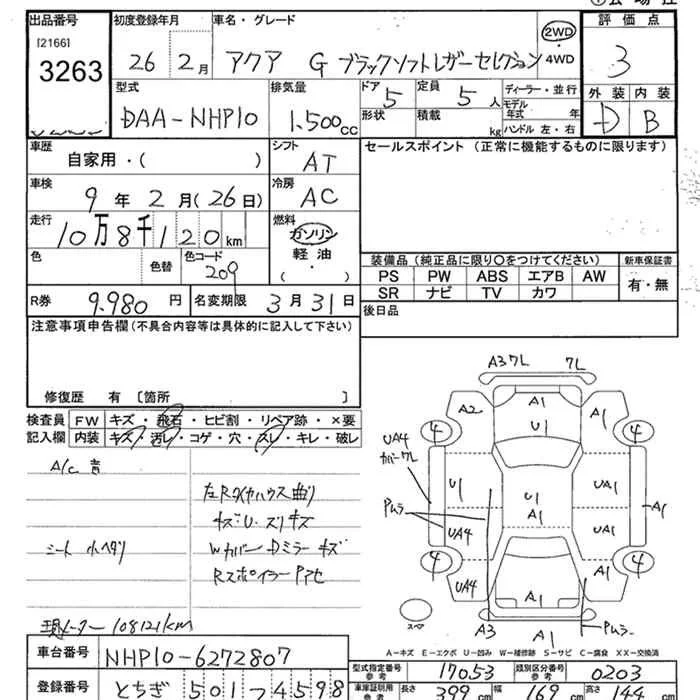 出品番号 初度登録年月 車名・グレード 評価点
[2166] 26 2月 アクア G ブラックソフトレザーセレクション 2WD 4WD 3
3263
型式 排気量 ドア 定員 ディーラー・並行 外装 内装
DAA-NHP10 1,500cc 5 5人 モデル年式 年 D B
形状 積載 kg ハンドル 左・右
車歴 シフト セールスポイント (正常に機能するものに限ります)
自家用・( ) AT
車検 冷房
9年2月(26日) AC
走行 燃料
10万8千120km ガソリン
色 色替 色コード 軽油
209 ・( )
装備品 (純正品に限り○をつけてください) 新車保証書
PS PW ABS エアB AW 有・無
SR ナビ TV カワ
R券 9,980円 名変期限 3月31日 後日品
注意事項申告欄(不具合内容等は具体的に記入して下さい)
修復歴 有 [箇所 ]
検査員 FW キズ・飛石・ヒビ割・リペア跡・×要
記入欄 内装 キズ・汚レ・コゲ・穴・スレ・キレ・破レ
A/C 音
左Rタイヤハウス曲り
キズ・U・スリキズ
シート 小ヘタリ
Wカバー・Dミラーキズ
RスポイラーPアセ
現メーター 108121km
A3ワレ ワレ
A2 A1 A1
4 U1 4
UA4
カバーワレ
U1 U1 UA1
Pムラ A1 A1
UA4 UA1
4 4
UA4 A1
スペア A3 A1 Pムラ
A-キズ E-エクボ U-凹み W-補修跡 S-サビ C-腐食 XX-交換済
車台番号 NHP10-6272807
型式指定番号 参考 17053 類別区分番号 参考 0203
登録番号 とちぎ 501 7 4598
車庫証明用 参考 長さ 399cm 幅 169cm 高さ 144cm